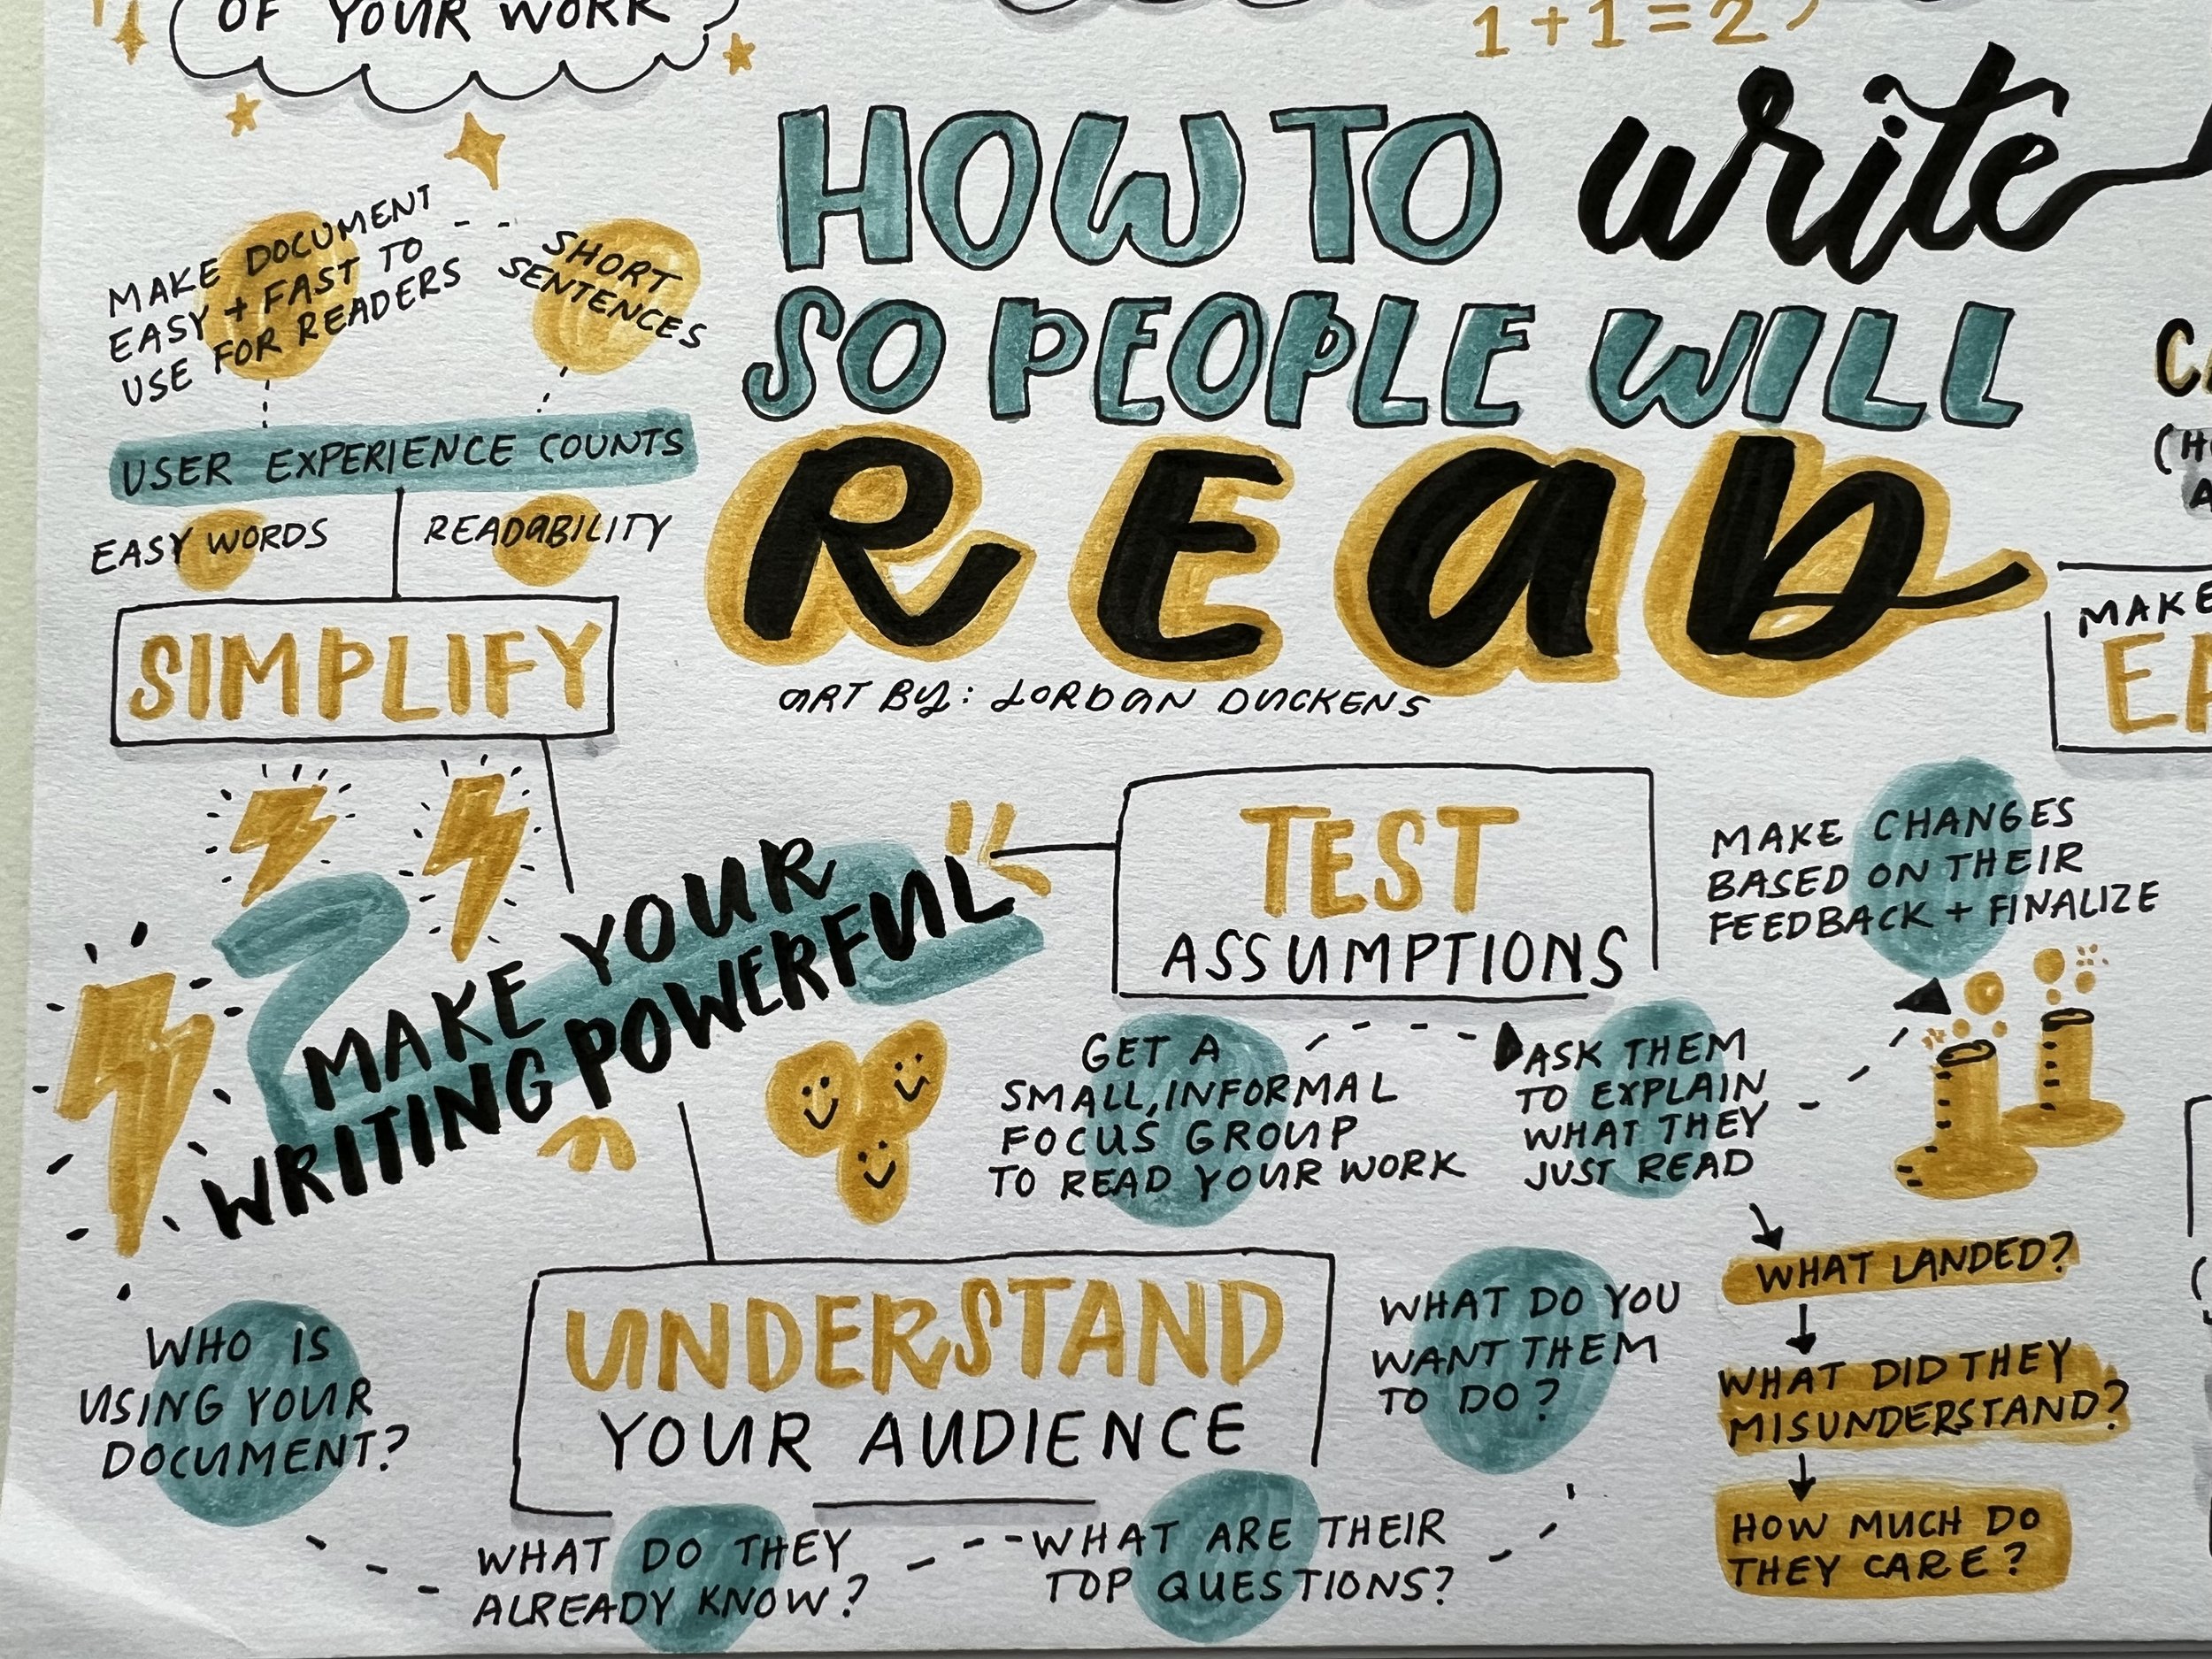 OF YOUR WORK
1+1=2
HOW TO write
SO PEOPLE WILL
READ
ART BY: JORDAN DUCKENS
MAKE DOCUMENT
EASY + FAST TO
USE FOR READERS
SHORT
SENTENCES
USER EXPERIENCE COUNTS
EASY WORDS
READABILITY
SIMPLIFY
MAKE
MAKE YOUR
WRITING POWERFUL
TEST
ASSUMPTIONS
GET A
SMALL, INFORMAL
FOCUS GROUP
TO READ YOUR WORK
ASK THEM
TO EXPLAIN
WHAT THEY
JUST READ
MAKE CHANGES
BASED ON THEIR
FEEDBACK + FINALIZE
WHAT LANDED?
WHAT DID THEY
MISUNDERSTAND?
HOW MUCH DO
THEY CARE?
UNDERSTAND
YOUR AUDIENCE
WHO IS
USING YOUR
DOCUMENT?
WHAT DO THEY
ALREADY KNOW?
WHAT ARE THEIR
TOP QUESTIONS?
WHAT DO YOU
WANT THEM
TO DO?